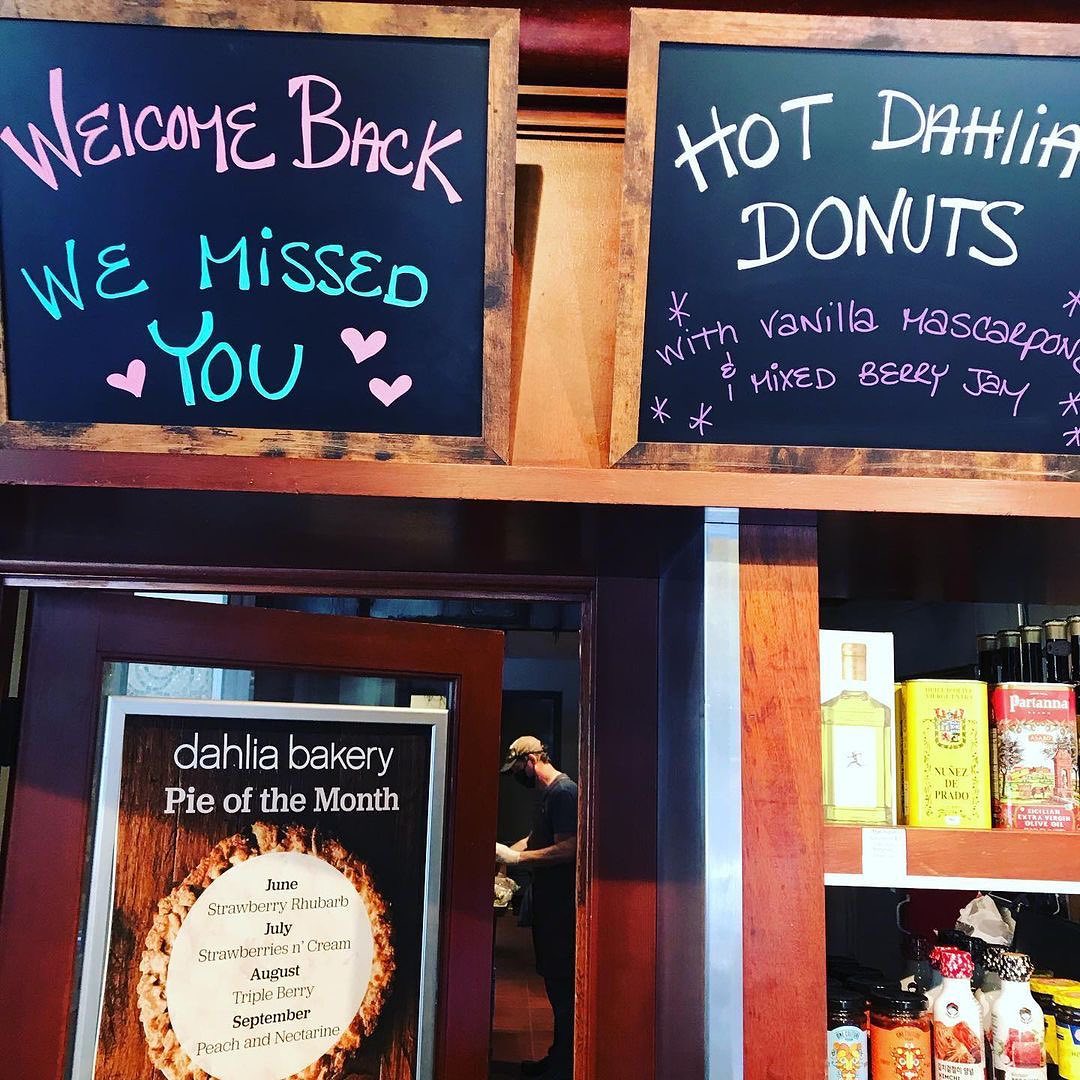 Welcome Back
We Missed
You
Hot Dahlia
Donuts
with vanilla mascarpone
& mixed berry jam
dahlia bakery
Pie of the Month
June
Strawberry Rhubarb
July
Strawberries n' Cream
August
Triple Berry
September
Peach and Nectarine
NUÑEZ
DE
PRADO
Partanna
ASARO
SICILIAN
EXTRA VIRGIN
OLIVE OIL
KIMCHI